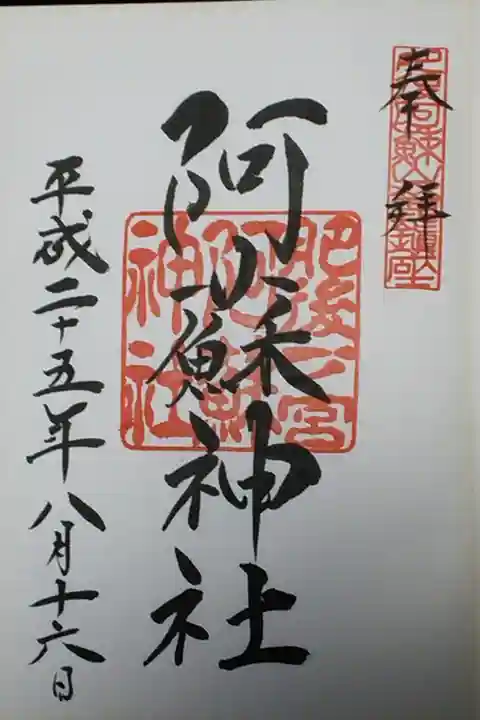 奉拝
阿蘇神社
肥後一宮
阿蘇
神社
平成二十五年八月十六日